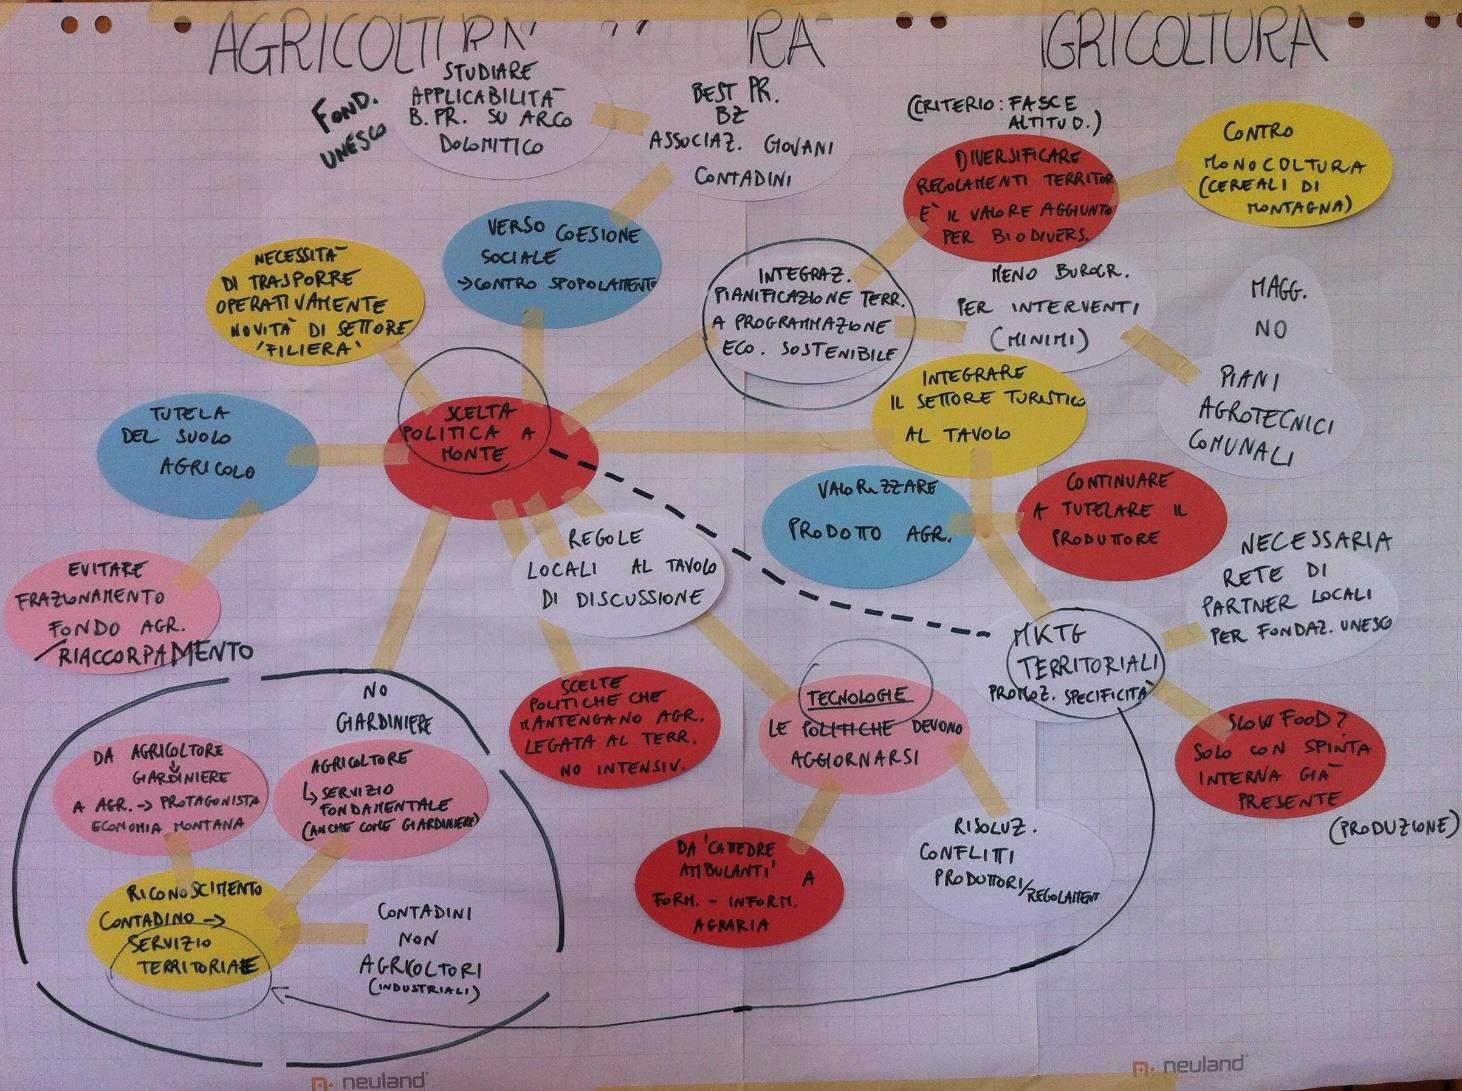 AGRICOLTURA
RA
AGRICOLTURA
FOND.
UNESCO
STUDIARE
APPLICABILITÀ
B. PR. SU ARCO
DOLOMITICO
BEST PR.
BZ
ASSOCIAZ. GIOVANI
CONTADINI
(CRITERIO: FASCE
ALTITUD.)
DIVERSIFICARE
REGOLAMENTI TERRITOR
E' IL VALORE AGGIUNTO
PER BIODIVERS.
CONTRO
MONOCOLTURA
(CEREALI DI
MONTAGNA)
VERSO COESIONE
SOCIALE
→CONTRO SPOPOLAMENTO
NECESSITÀ
DI TRASPORRE
OPERATIVAMENTE
NOVITÀ DI SETTORE
'FILIERA'
INTEGRAZ.
PIANIFICAZIONE TERR.
A PROGRAMMAZIONE
ECO. SOSTENIBILE
MENO BUROCR.
PER INTERVENTI
(MINIMI)
MAGG.
NO
PIANI
AGROTECNICI
COMUNALI
INTEGRARE
IL SETTORE TURISTICO
AL TAVOLO
SCELTA
POLITICA A
MONTE
TUTELA
DEL SUOLO
AGRICOLO
VALORIZZARE
PRODOTTO AGR.
CONTINUARE
A TUTELARE IL
PRODUTTORE
REGOLE
LOCALI AL TAVOLO
DI DISCUSSIONE
NECESSARIA
RETE DI
PARTNER LOCALI
PER FONDAZ. UNESCO
EVITARE
FRAZIONAMENTO
FONDO AGR.
/RIACCORPAMENTO
MKTG
TERRITORIALI
PROMOZ. SPECIFICITÀ
NO
GIARDINIERE
SCELTE
POLITICHE CHE
MANTENGANO AGR.
LEGATA AL TERR.
NO INTENSIV.
TECNOLOGIE
LE POLITICHE DEVONO
AGGIORNARSI
SLOW FOOD?
SOLO CON SPINTA
INTERNA GIÀ
PRESENTE
(PRODUZIONE)
DA AGRICOLTORE
↓
GIARDINIERE
A AGR.→ PROTAGONISTA
ECONOMIA MONTANA
AGRICOLTORE
↳ SERVIZIO
FONDAMENTALE
(ANCHE COME GIARDINIERE)
DA 'CATTEDRE
AMBULANTI' A
FORM. - INFORM.
AGRARIA
RISOLUZ.
CONFLITTI
PRODUTTORI/REGOLAMENT
RICONOSCIMENTO
CONTADINO →
SERVIZIO
TERRITORIALE
CONTADINI
NON
AGRICOLTORI
(INDUSTRIALI)
neuland
neuland